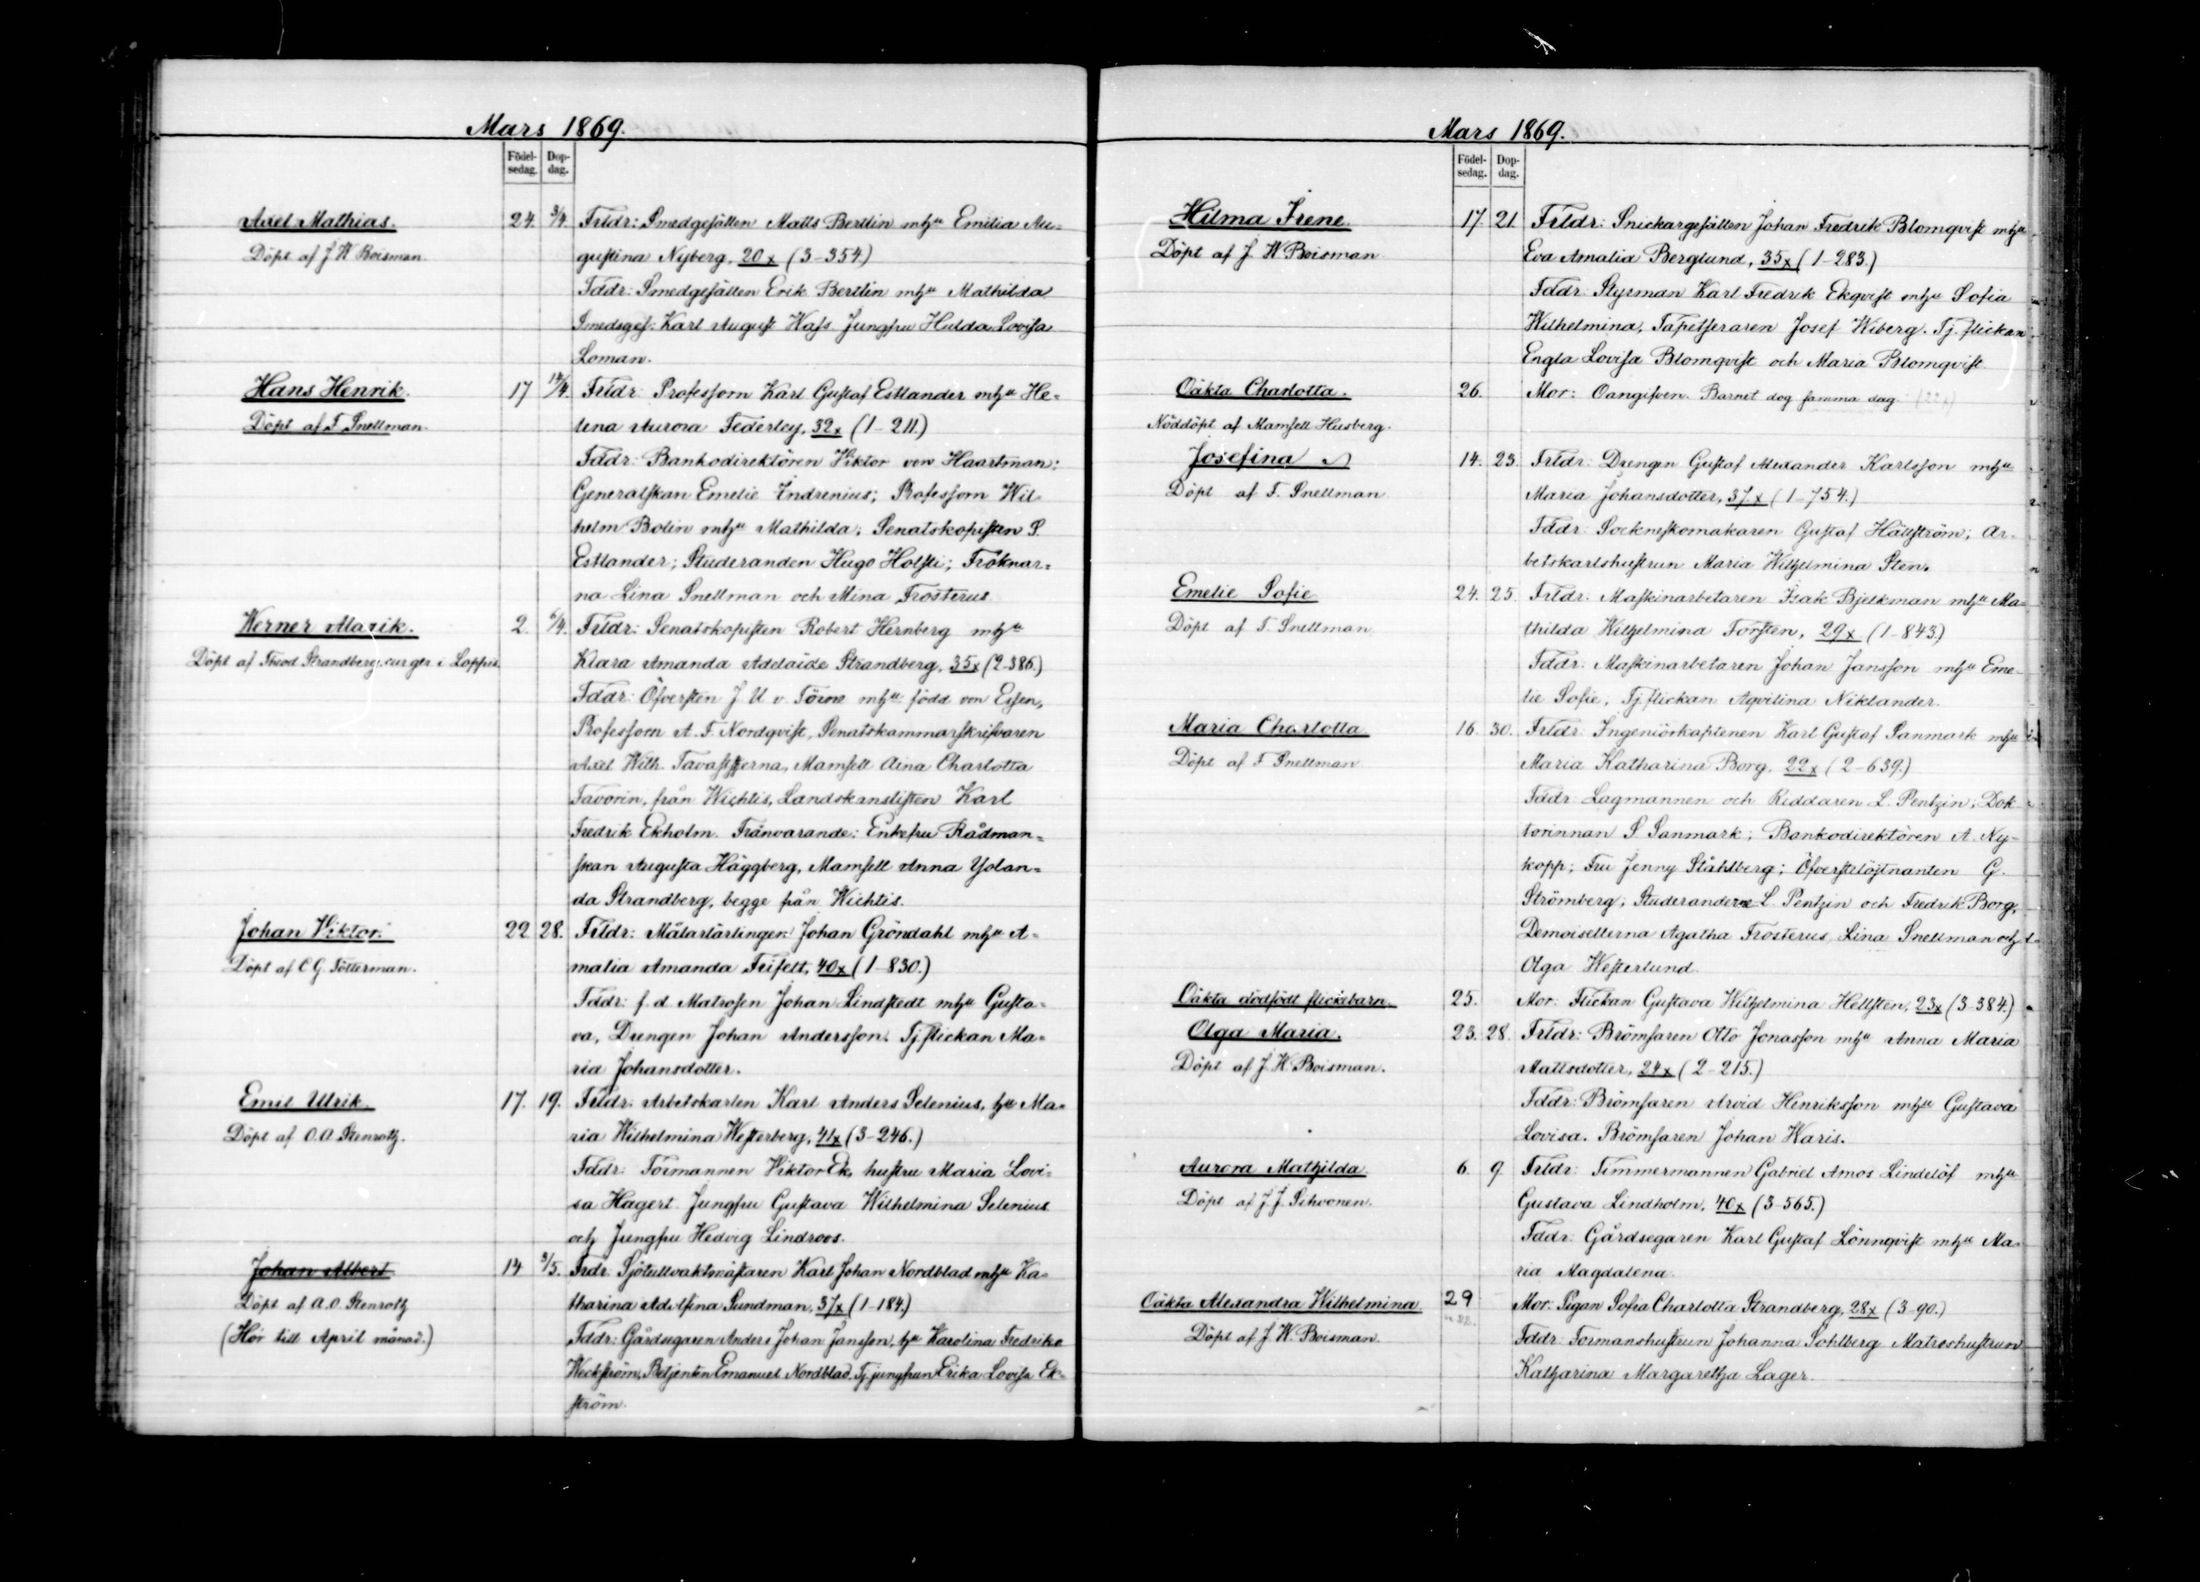 Mars 1869.
Födel-
sedag.
Dop-
dag.
Axel Mathias. 24. 3/4. Frldr: Smedgesällen Matts Bertlin mhu Emilia Au-
Döpt af J. W. Boisman. gustina Nyberg, 20x (3-354.)
Fddr: Smedgesällen Erik Bertlin mhu Mathilda
Smedsges. Karl August Wass Jungfru Hulda Lovisa
Loman.
Hans Henrik. 17 12/4. Frldr: Professorn Karl Gustaf Estlander mhu He-
Döpt af F. Snellman. lena Aurora Federley, 32x (1-211.)
Fddr: Bankodirektören Viktor von Haartman;
Generalskan Emelie Indrenius; Professorn Wil-
helm Bolin mhu Mathilda; Senatskopisten S.
Estlander; Studeranden Hugo Holsti; Fröknar-
na Lina Snellman och Mina Frosterus.
Werner Alarik. 2. 5/4. Frldr: Senatskopisten Robert Hernberg mhu
Döpt af Theod Strandberg, i Loppis. Klara Amanda Adelaide Strandberg, 35x (2-386.)
Fddr: Öfversten J. U. v. Törne mhu född von Essen,
Professorn A. F. Nordqvist, Senatskammarskrifvaren
Axel Wilh. Tavaststjerna, Mamsell Aina Charlotta
Favorin, från Wichtis, Landskanslisten Karl
Fredrik Ekholm. Frånvarande: Enkefru Rådman-
skan Augusta Häggberg, Mamsell Anna Yolan-
da Strandberg, begge från Wichtis.
Johan Viktor. 22 28. Frldr: Målarlärlingen Johan Gröndahl mhu A-
Döpt af C G. Tötterman. malia Amanda Frisell, 40x (1-830.)
Fddr: f. d. Matrosen Johan Lindstedt mhu Gusta-
va, Drengen Johan Andersson. Tj. flickan Ma-
ria Johansdotter.
Emil Ulrik. 17. 19. Frldr: Arbetskarlen Karl Anders Selenius, hu Ma-
Döpt af O. A. Stenroth. ria Wilhelmina Westerberg, 41x (3-246.)
Fddr: Formannen Viktor Ek, hustru Maria Lovi-
sa Hagert. Jungfru Gustava Wilhelmina Selenius
och Jungfru Hedvig Lindroos.
Johan Albert 14 3/5. Frdr. Sjötullvaktmästaren Karl Johan Nordblad mhu Ka-
Döpt af A. O. Stenroth tharina Adolfina Sundman, 37x (1-184.)
(Hör till April månad.) Fddr: Gårdsegaren Anders Johan Jansson, hu Karolina Fredrika
Weckström, Betjenten Emanuel Nordblad, Tj. jungfrun Erika Lovisa Ek-
ström.
Mars 1869.
Födel-
sedag.
Dop-
dag.
Hilma Irene. 17. 21. Frldr: Snickargesällen Johan Fredrik Blomqvist mhu
Döpt af J. W. Boisman Eva Amalia Berglund, 35x (1-283.)
Fddr: Styrman Karl Fredrik Ekqvist mhu Sofia
Wilhelmina, Tapetseraren Josef Wiberg. Tj. flickan
Engla Lovisa Blomqvist och Maria Blomqvist
Oäkta Charlotta. 26. Mor: Oangifven. Barnet dog samma dag.
Nöddöpt af Mamsell Husberg.
Josefina 14. 23. Frldr: Drengen Gustaf Alexander Karlsson mhu
Döpt af F. Snellman Maria Johansdotter, 37.x (1-754.)
Fddr: Sockneskomakaren Gustaf Hällström; Ar-
betskarlshustrun Maria Wilhelmina Sten.
Emelie Sofie 24. 25. Frldr: Maskinarbetaren Isak Bjelkman mhu Ma-
Döpt af F. Snellman thilda Wilhelmina Forsten, 29x (1-843.)
Fddr: Maskinarbetaren Johan Jansson mhu Eme-
lie Sofie, Tj. flickan Aqvilina Niklander.
Maria Charlotta 16. 30. Frldr: Ingeniörkaptenen Karl Gustaf Sanmark mhu
Döpt af F Snellman Maria Katharina Borg, 22x (2-639.)
Fddr Lagmannen och Riddaren L. Pentzin; Dok-
torinnan S Sanmark; Bankodirektören A. Ny-
kopp; Fru Jenny Ståhlberg; Öfverstelöjtnanten G.
Strömberg; Studerandene L. Pentzin och Fredrik Borg,
Demoisellerna Agatha Frosterus, Lina Snellman och
Olga Westerlund.
Oäkta dödfödt flickebarn. 25. Mor: Flickan Gustava Wilhelmina Hellsten, 23x (3-384.)
Olga Maria. 23. 28. Frldr: Brömsaren Otto Jonasson mhu Anna Maria
Döpt af J. W. Boisman. Mattsdotter, 24x (2-215.)
Fddr: Brömsaren Arvid Henriksson mhu Gustava
Lovisa. Brömsaren Johan Haris.
Aurora Mathilda 6. 9. Frldr: Timmermannen Gabriel Amos Lindelöf mhu
Döpt af J. J. Sihvonen. Gustava Lindholm, 40x (3-565.)
Fddr: Gårdsegaren Karl Gustaf Lönnqvist mhu Ma-
ria Magdalena.
Oäkta Alexandra Wilhelmina 29 Mor: Pigan Sofia Charlotta Strandberg, 28x (3-90.)
Döpt af J. W. Boisman. Fddr: Formanshustrun Johanna Sohlberg Matroshustrun
Katharina Margaretha Lager.